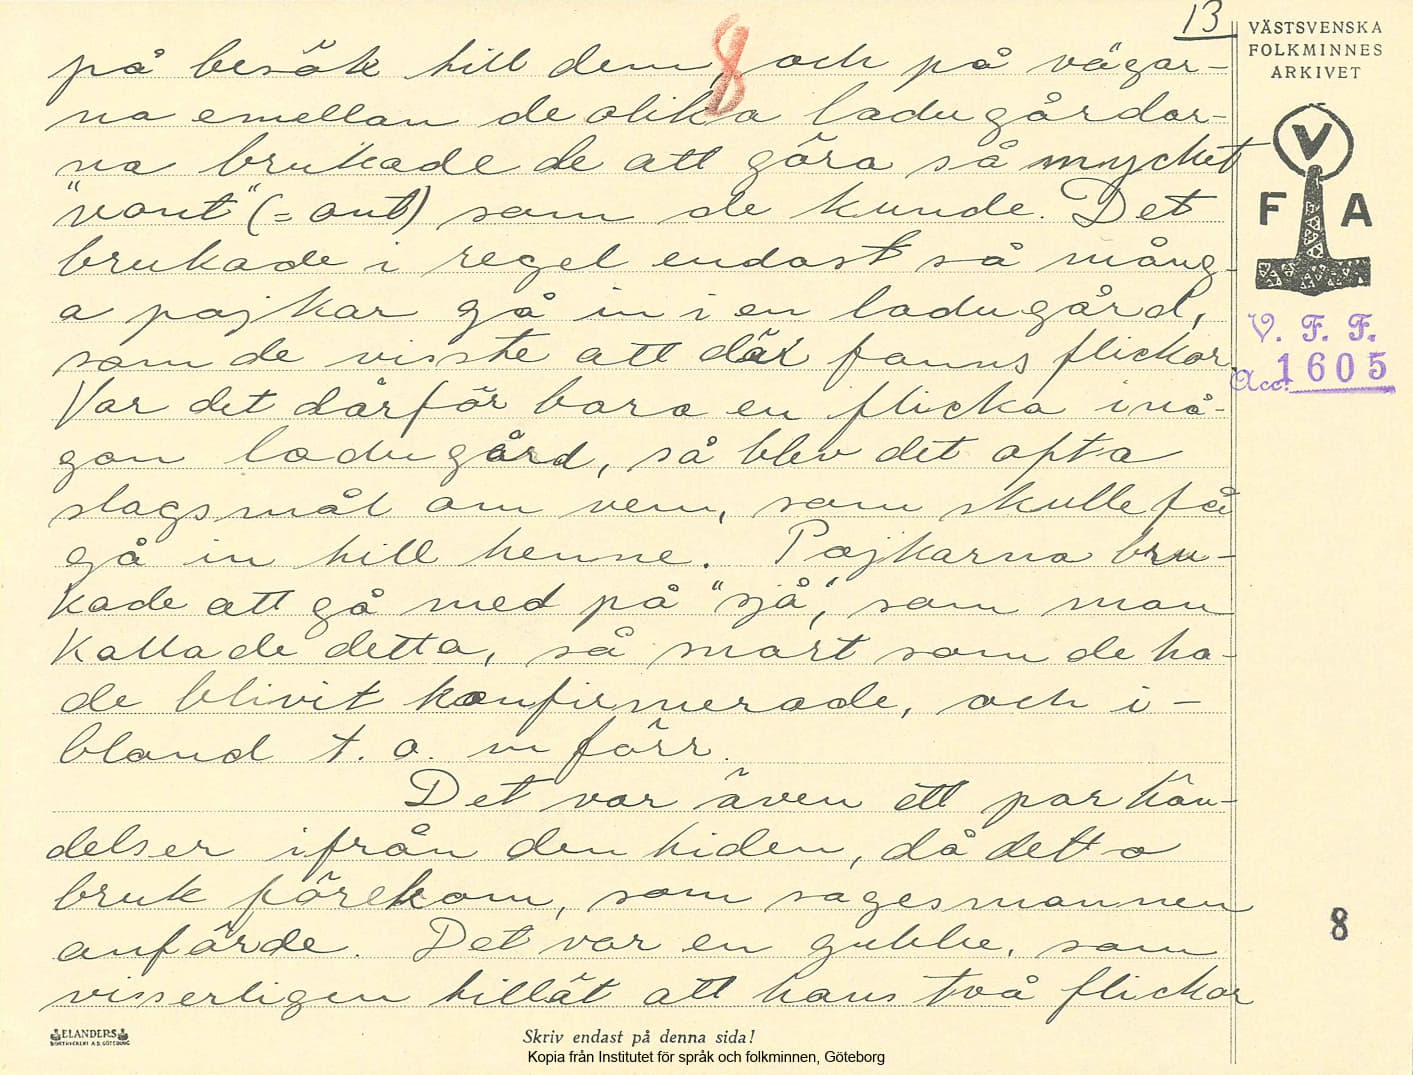 13
VÄSTSVENSKA
FOLKMINNES
ARKIVET
8
på besök till dem, och på vägar-
na emellan de olika ladugårdar-
na brukade de att göra så mycket
"vont" (= ont) som de kunde. Det
brukade i regel endast så mång-
a pojkar gå in i en ladugård,
som de visste att där fanns flickor.
Var det därför bara en flicka i nå-
gon ladugård, så blev det ofta
slagsmål om vem, som skulle få
gå in till henne. Pojkarna bru-
kade att gå med på "sjå", som man
kallade detta, så snart som de ha-
de blivit konfirmerade, och i-
bland t. o. m förr.
Det var även ett par hän-
delser ifrån den tiden, då detta
bruk förekom, som sagesmannen
anförde. Det var en gubbe, som
visserligen tillät att hans två flickor
V
F A
V. F. F.
Acc. 1605
8
ELANDERS
BOKTRYCKERI A.B. GÖTEBORG
Skriv endast på denna sida!
Kopia från Institutet för språk och folkminnen, Göteborg